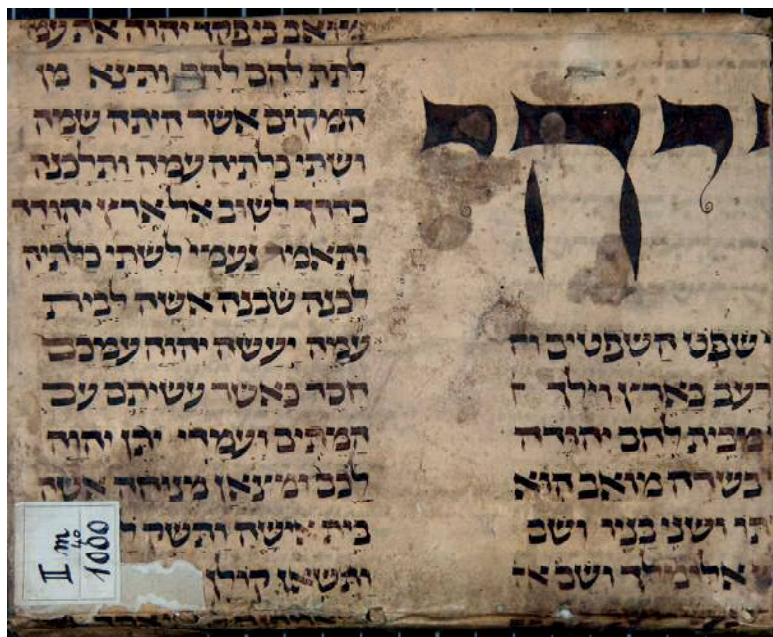 ויהי
שפט השפטים
רעב בארץ וילך
מבית לחם יהודה
בשדה מואב הוא
ושני בניו ושם
אלימלך ושם א
מואב כי פקד יהוה את עמו
לתת להם לחם ותצא מן
המקום אשר היתה שמה
ושתי כלתיה עמה ותלכנה
בדרך לשוב אל ארץ יהודה
ותאמר נעמי לשתי כלתיה
לכנה שבנה אשה לבית
אמה יעשה יהוה עמכם
חסד כאשר עשיתם עם
המתים ועמדי יתן יהוה
לכם ומצאן מנוחה אשה
בית אישה ותשק ל
קולן
II m
40
1000